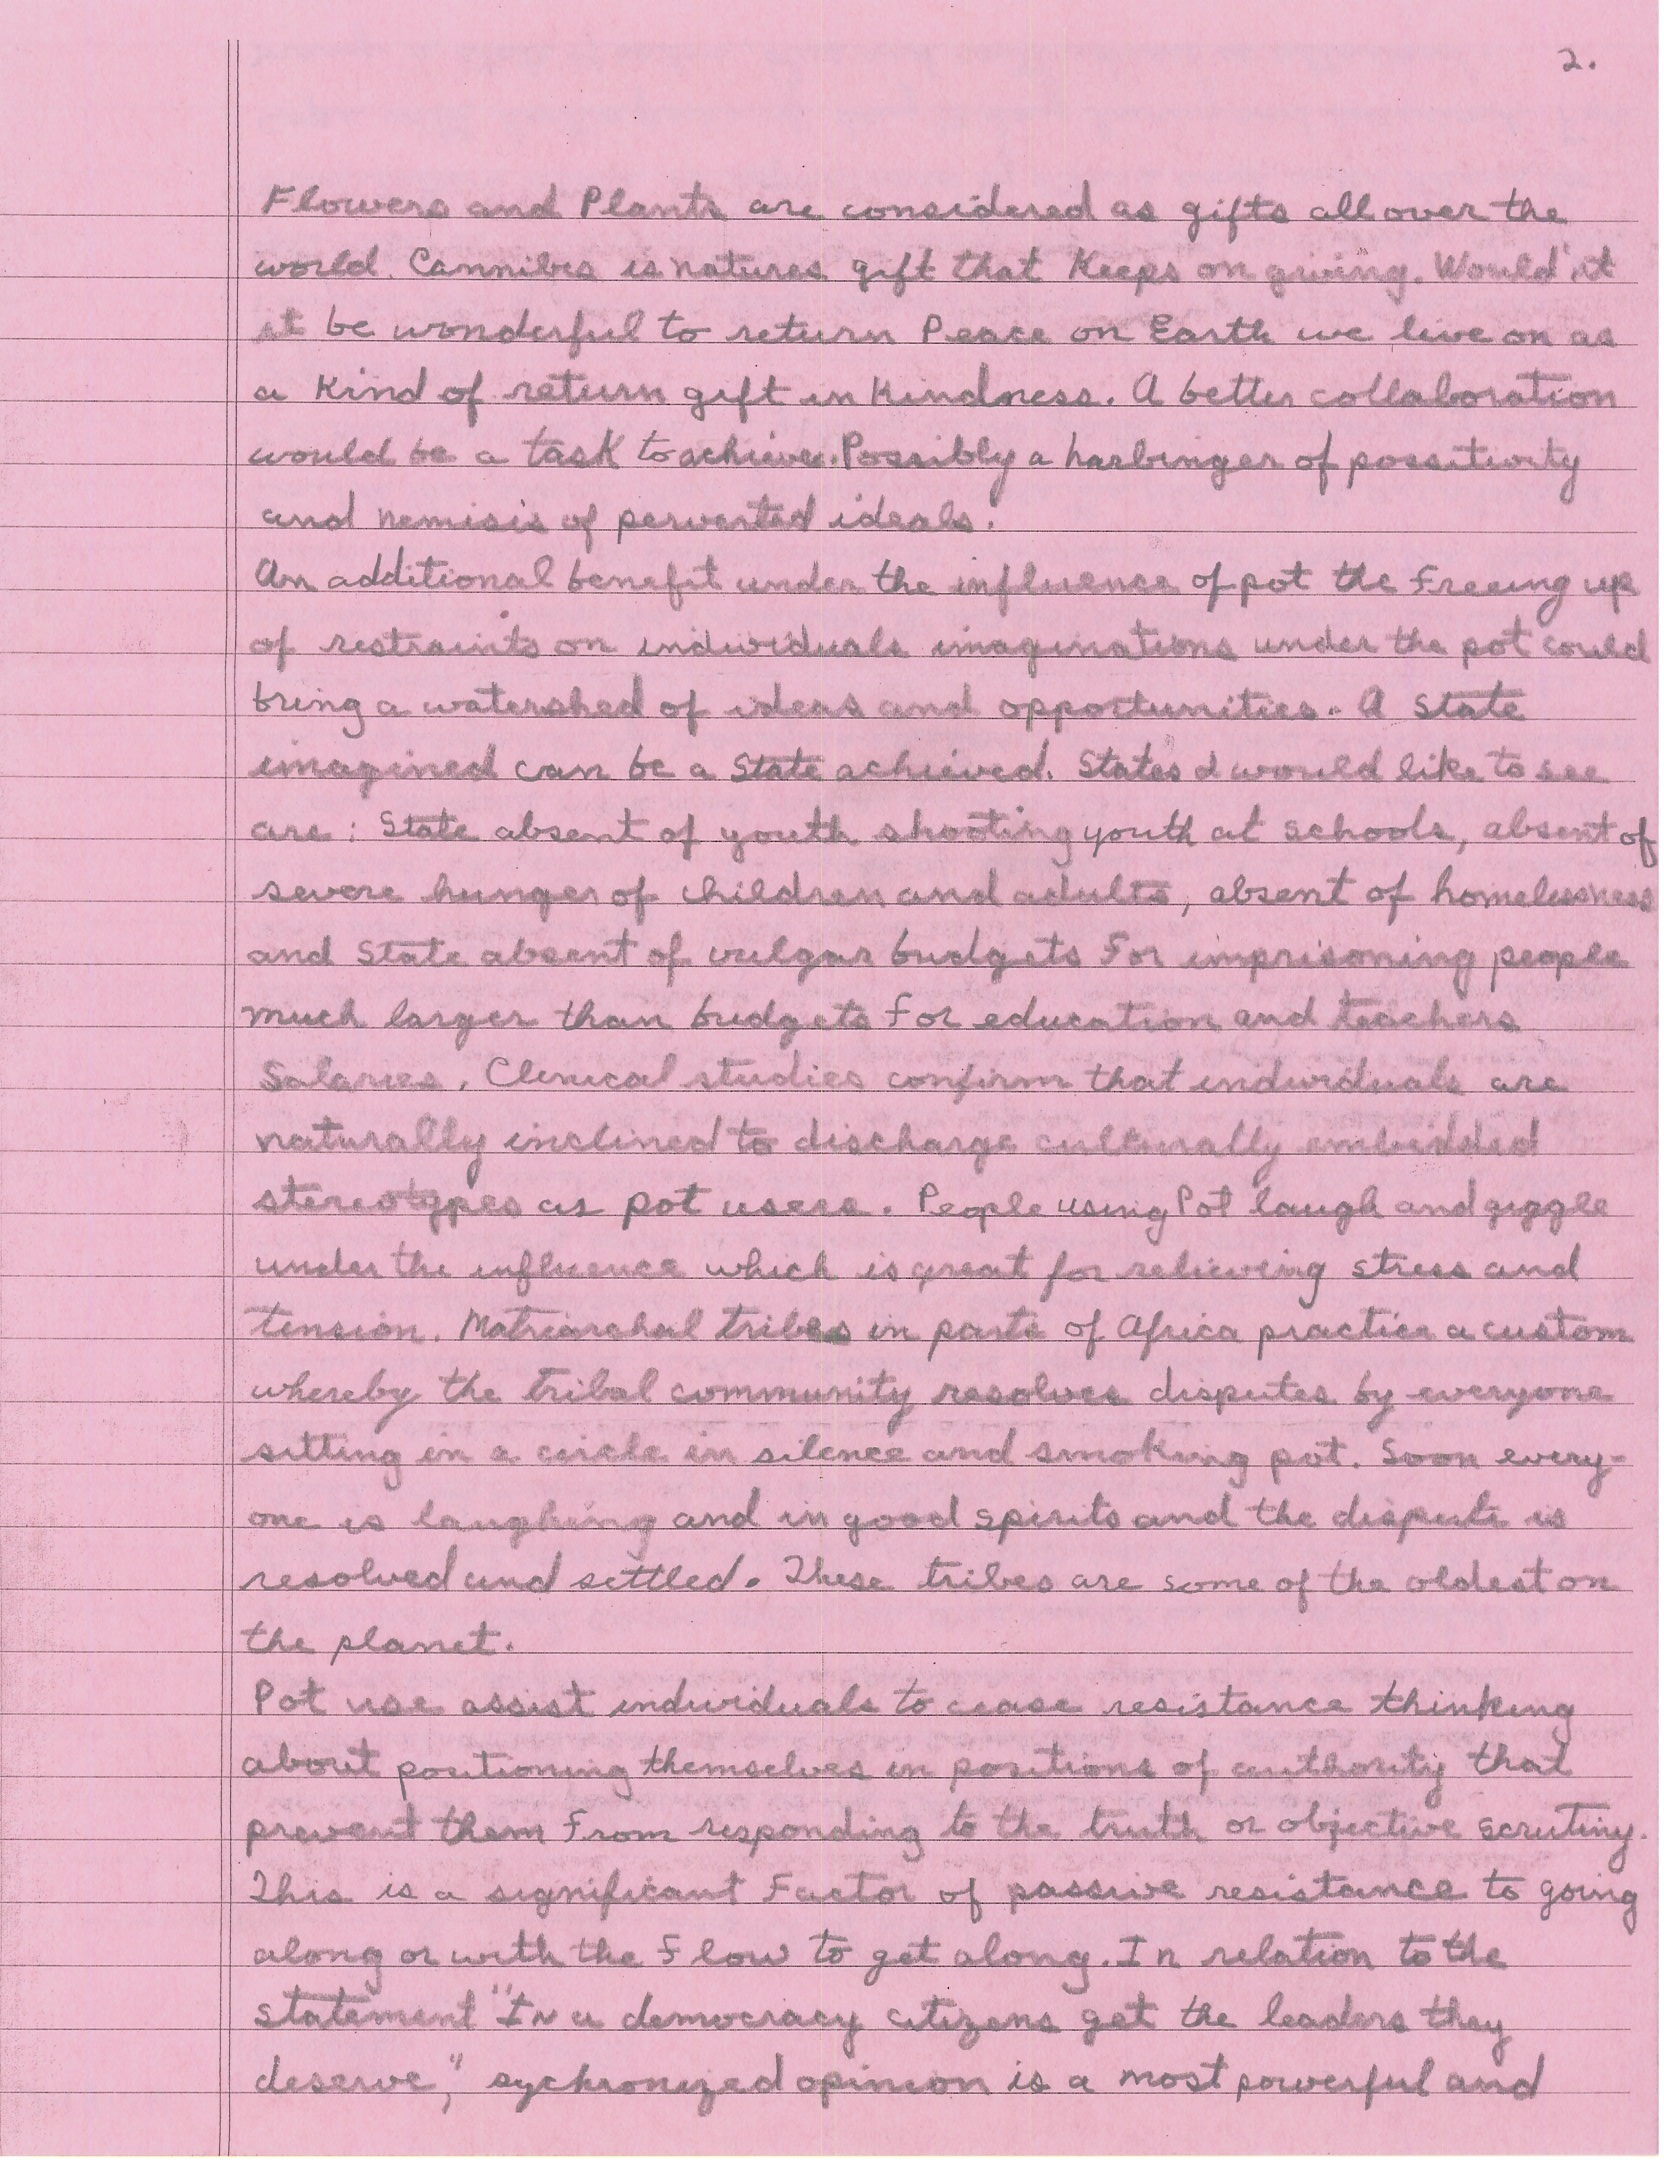 2.
Flowers and Plants are considered as gifts all over the
world. Cannibis is natures gift that Keeps on giving. Would it
it be wonderful to return Peace on Earth we live on as
a Kind of return gift in Kindness. A better collaboration
would be a task to achieve. Possibly a harbinger of possitivity
and nemisis of perverted ideals.
An additional benefit under the influence of pot the Freeing up
of restraints on individuals imaginations under the pot could
bring a watershed of ideas and opportunities. A State
imagined can be a State achieved. States I would like to see
are: State absent of youth shooting youth at schools, absent of
severe hunger of children and adults, absent of homelessness
and State absent of vulgar budgets For imprisoning people
much larger than budgets for education and teachers
Salaries. Clinical studies confirm that individuals are
naturally inclined to discharge culturally embedded
stereotypes as pot users. People using Pot laugh and giggle
under the influence which is great for relieving stress and
tension. Matriarchal tribes in parts of Africa practice a custom
whereby the tribal community resolves disputes by everyone
sitting in a circle in silence and smoking pot. Soon every-
one is laughing and in good spirits and the dispute is
resolved and settled. These tribes are some of the oldest on
the planet.
Pot use assist individuals to cease resistance thinking
about positioning themselves in positions of authority that
prevent them From responding to the truth or objective scrutiny.
This is a significant Factor of passive resistance to going
along or with the Flow to get along. In relation to the
statement "In a democracy citizens get the leaders they
deserve," sychronized opinion is a most powerful and